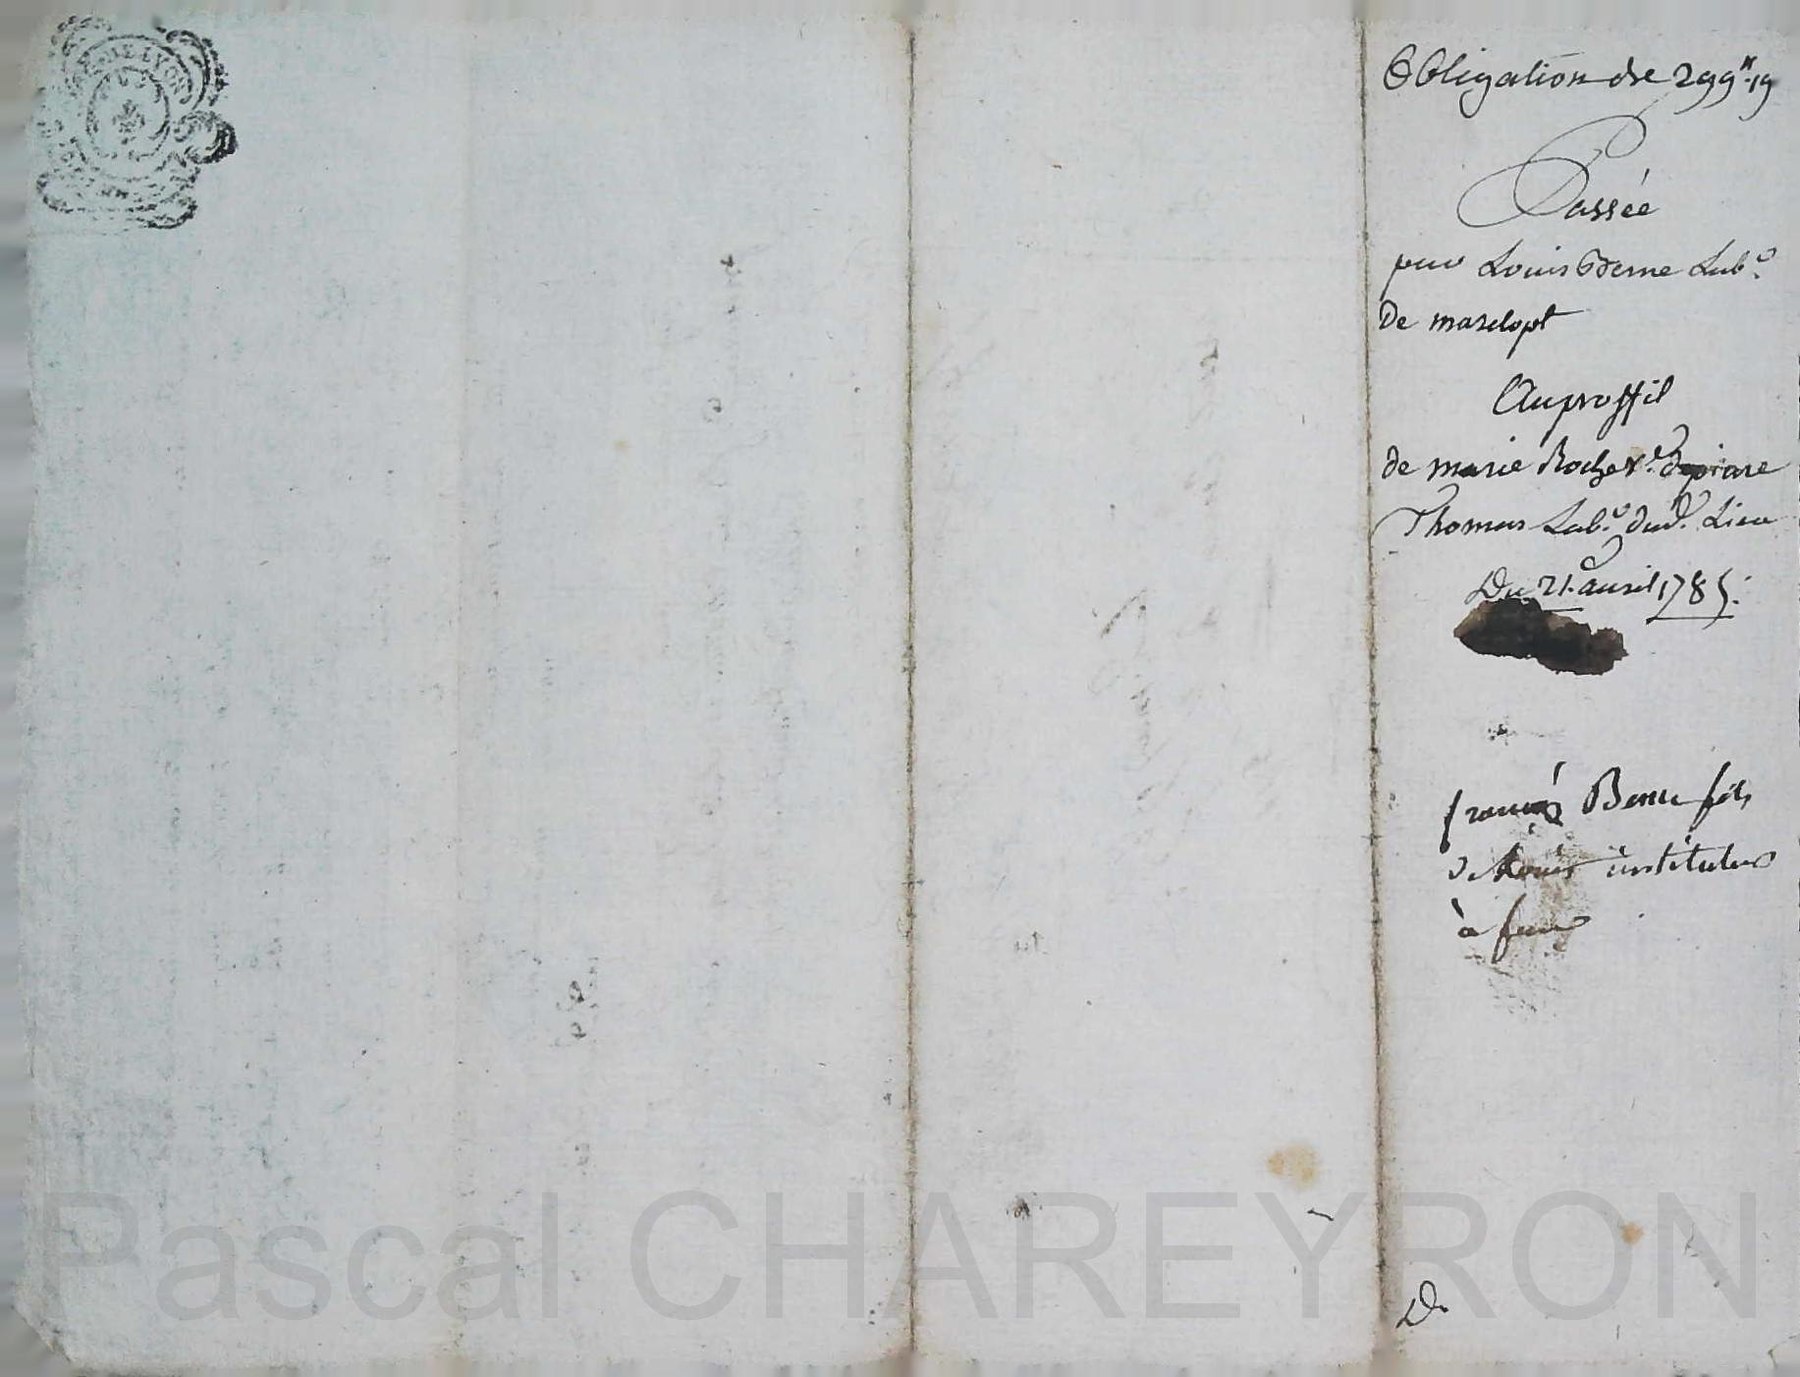 DE LYON
Obligation de 299᙮ 19
Passée
par Louis Berne Lab.r
De marclopt
Au proffit
de marie Roche v.e de piare
Thomas Lab.r dud. Lieu
Du 21. avril 1785.
françois Berne fils
de Louis instituteur
à feurs
D.
Pascal CHAREYRON